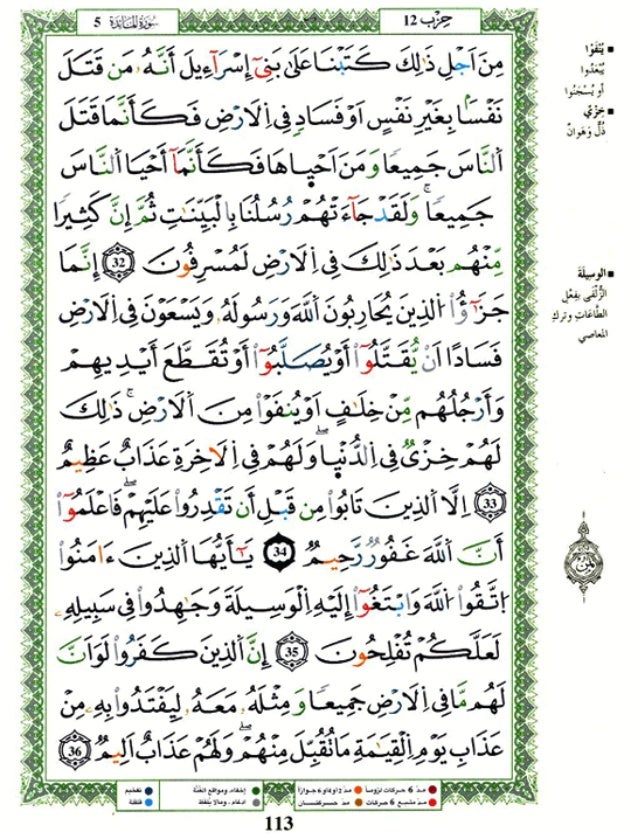 سُورَةُ المَائِدَة 5
حِزْب 12
مِنَ اَجْلِ ذَٰلِكَ كَتَبْنَا عَلَىٰ بَنِىٓ إِسْرَآءِيلَ أَنَّهُۥ مَن قَتَلَ
نَفْسًۢا بِغَيْرِ نَفْسٍ اَوْ فَسَادٍ فِى اِلَارْضِ فَكَأَنَّمَا قَتَلَ
اَلنَّاسَ جَمِيعًا وَمَنَ اَحْيٍاهَا فَكَأَنَّمَآ أَحْيَا اَلنَّاسَ
جَمِيعًا ۚ وَلَقَدْ جَآءَتْهُمْ رُسُلُنَا بِالْبَيِّنَٰتِ ثُمَّ إِنَّ كَثِيرًا
مِّنْهُم بَعْدَ ذَٰلِكَ فِى اِلَارْضِ لَمُسْرِفُونَ 32 إِنَّمَا
جَزَٰٓؤُا اُلذِينَ يُحَارِبُونَ اَللَّهَ وَرَسُولَهُۥ وَيَسْعَوْنَ فِى اِلَارْضِ
فَسَادًا اَنْ يُّقَتَّلُوٓا أَوْ يُصَلَّبُوٓا أَوْ تُقَطَّعَ أَيْدِيهِمْ
وَأَرْجُلُهُم مِّنْ خِلَٰفٍ اَوْ يُنفَوْا مِنَ اَلَارْضِ ۚ ذَٰلِكَ
لَهُمْ خِزْىٌ فِى اِلدُّنْيٍا ۖ وَلَهُمْ فِى اِلَاخِرَةِ عَذَابٌ عَظِيمٌ
33 اِلَّا اَلذِينَ تَابُوا مِن قَبْلِ أَن تَقْدِرُوا عَلَيْهِمْ ۖ فَاعْلَمُوٓا
أَنَّ اَللَّهَ غَفُورٌ رَّحِيمٌ 34 يَٰٓأَيُّهَا اَلذِينَ ءَامَنُوا
اُتَّقُوا اُللَّهَ وَابْتَغُوٓا إِلَيْهِ اِلْوَسِيلَةَ وَجَٰهِدُوا فِى سَبِيلِهِۦ
لَعَلَّكُمْ تُفْلِحُونَ 35 إِنَّ اَلذِينَ كَفَرُوا لَوَ اَنَّ
لَهُم مَّا فِى اِلَارْضِ جَمِيعًا وَمِثْلَهُۥ مَعَهُۥ لِيَفْتَدُوا بِهِۦ مِنْ
عَذَابِ يَوْمِ اِلْقِيَٰمَةِ مَا تُقُبِّلَ مِنْهُمْ ۖ وَلَهُمْ عَذَابٌ اَلِيمٌ 36
يُنفَوْا
يُبْعَدُوا
أو يُسْجَنُوا
خِزْيٌ
ذُلٌّ وَهَوانٌ
الوسِيلَةَ
الزُّلْفَى بِفِعْلِ
الطَّاعَاتِ وَتركِ
المعاصي
مدّ 6 حركات لزوماً
مدّ 2 أو 4 أو 6 جوازاً
إخفاء، ومواقع الغُنَّة
تفخيم
مدّ مشبع 6 حركات
مد حسركتسان
ادغام، ومالا يلفظ
قلقلة
113